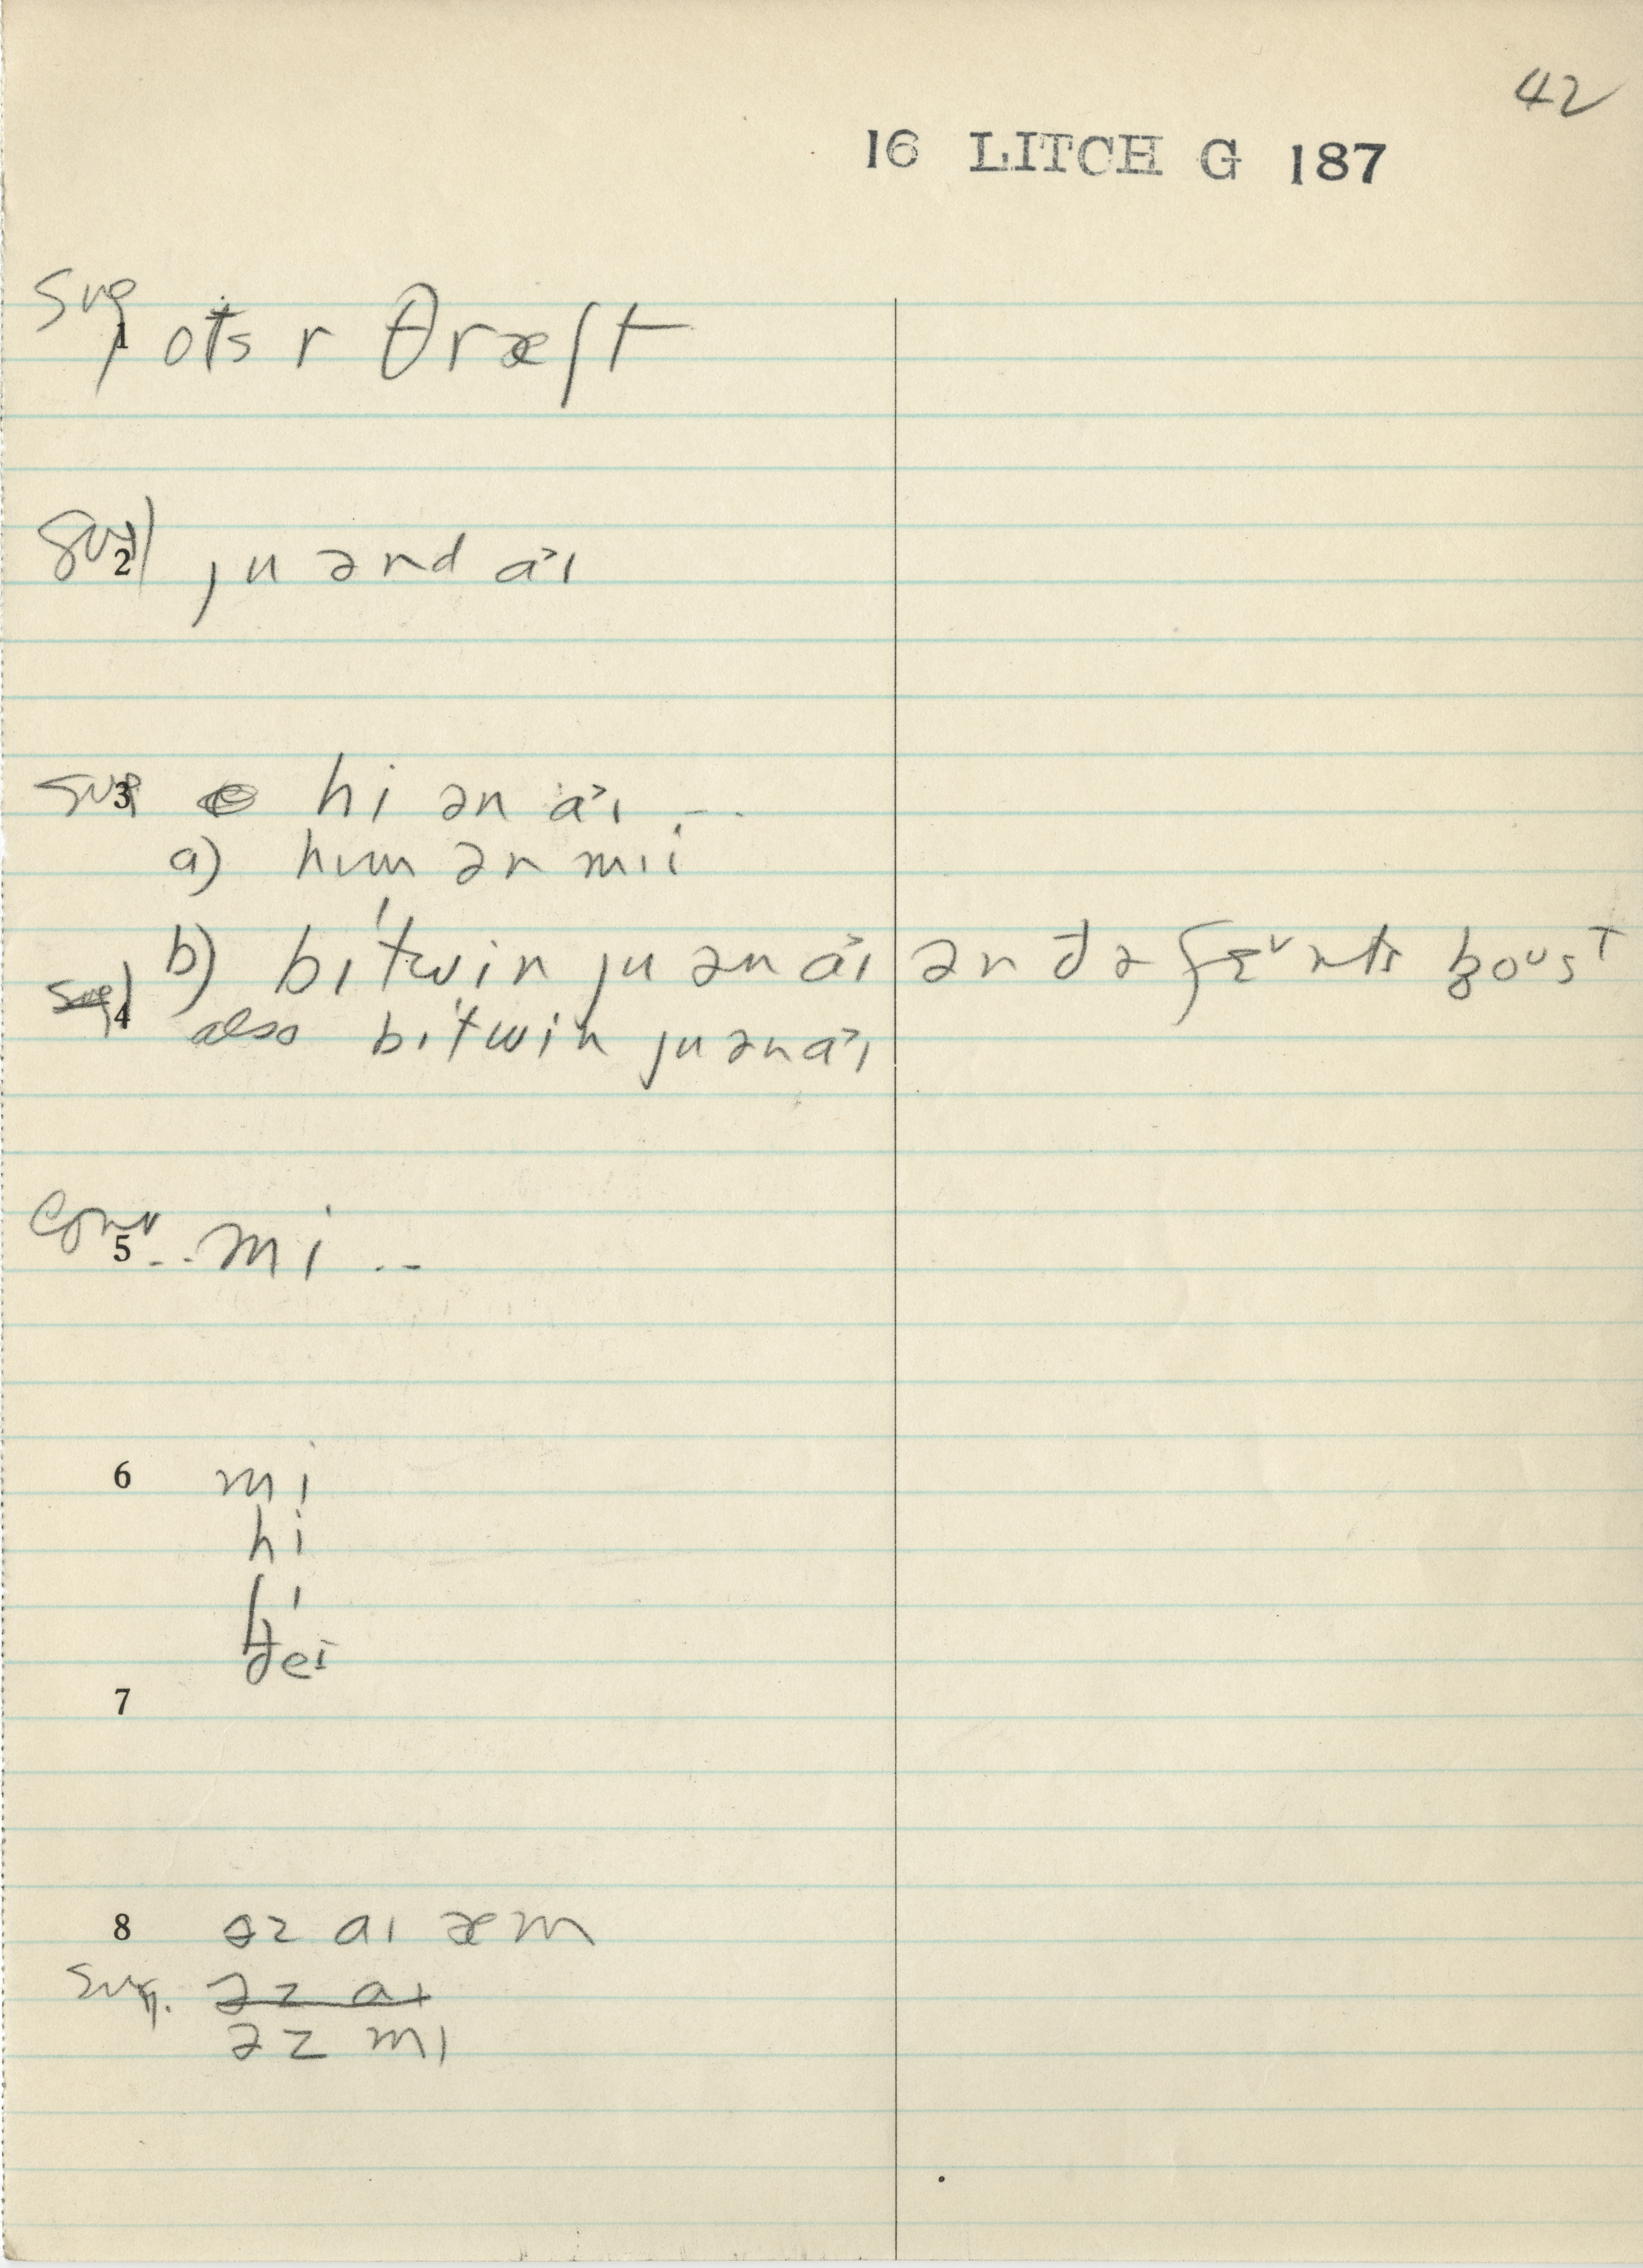 42
16 LITCH G 187
sug
1) ots r θræʃt
sug) 2 ju ənd a˃ɪ
sug 3 hi ən a˃ɪ ...
a) hɪm ən mɪi
b) bɪˈtwin ju ən a˃ɪ ən ðə geᵛɪts poᴜsᴛ
4 also bɪˈtwin ju ən a˃ɪ
conv. 5 .. mi ..
6 mi
hi
ʃi
ðeɪ
7
8 əz aɪ æm
sug. əz aɪ
əz mi